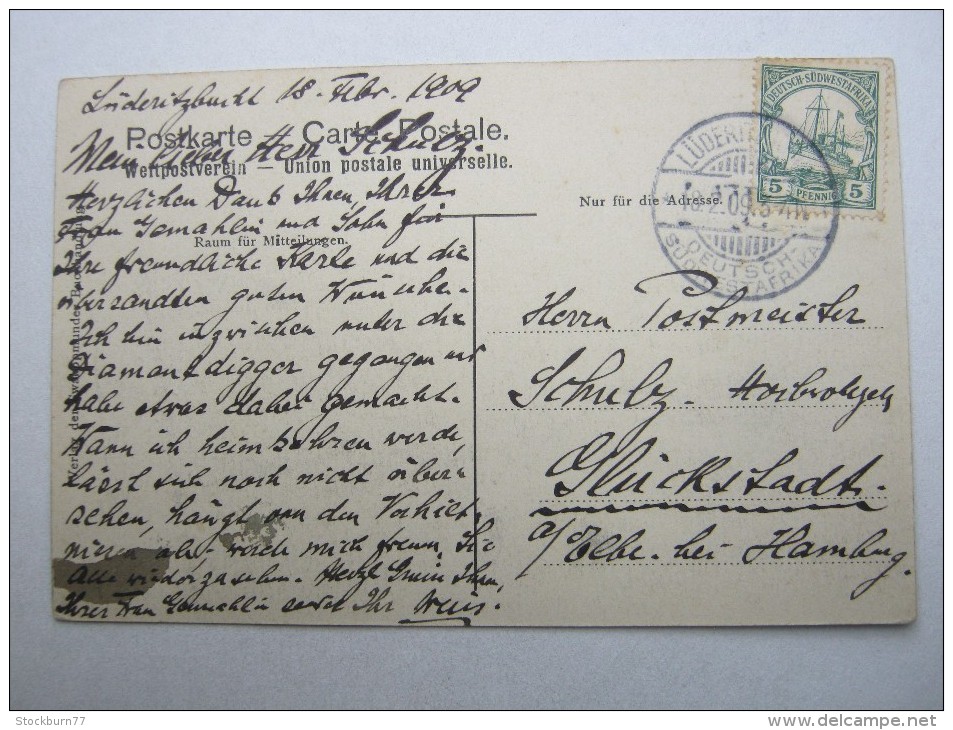 Lüderitzbucht 18. Febr. 1909
Mein lieber Herr Schulz.
Postkarte – Carte Postale.
Weltpostverein – Union postale universelle.
Herzlichen Dank Ihnen, Ihrer
Frau Gemahlin und Sohn für
Raum für Mitteilungen.
Ihre freundliche Karte und die
übersandten guten Wünsche.
Ich bin inzwischen unter die
Diamantdigger gegangen und
habe etwas dabei gemacht.
Wann ich heimkehren werde,
lässt sich noch nicht über-
sehen, hängt von den Verhält-
nissen ab, werde mich freuen, Sie
alle wiederzusehen. Herzl. Ihnen,
Ihrer Frau Gemahlin sowie Ihr
Verlag der
DEUTSCH-SÜDWESTAFRIKA
5 PFENNIG 5
LÜDERITZ
2.09
DEUTSCH-
SÜDWESTAFRIKA
Nur für die Adresse.
Herrn Postmeister
Schulz.
Glückstadt.
a/Elbe. bei Hamburg.
Stockburn77
www.delcampe.net